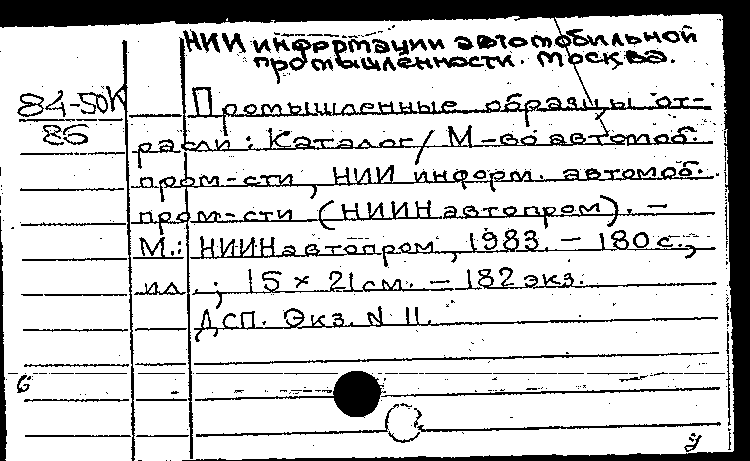 НИИ информации автомобильной
промышленности. Москва.
84-50К
86
Промышленные образцы от-
расли: Каталог/ М-во автомоб.
пром-сти, НИИ информ. автомоб.
пром-сти (НИИНавтопром). –
М.: НИИНавтопром, 1983. – 180 с.,
ил.; 15 × 21 см. – 182 экз.
ДСП. Экз. N 11.
6
у